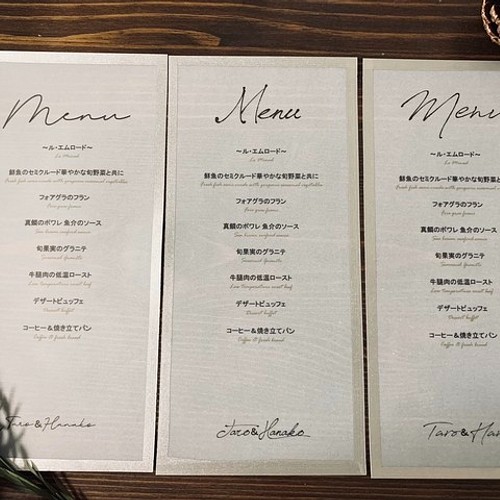 Menu
～ル・エムロード～
鮮魚のセミクルード華やかな旬野菜と共に
フォアグラのフラン
真鯛のポワレ 魚介のソース
旬果実のグラニテ
牛腿肉の低温ロースト
Low temperature roast beef
デザートビュッフェ
Dessert buffet
コーヒー＆焼き立てパン
Coffee & fresh bread
Taro&Hanako
Menu
～ル・エムロード～
鮮魚のセミクルード華やかな旬野菜と共に
Fresh fish semi-crude with gorgeous seasonal vegetables
フォアグラのフラン
真鯛のポワレ 魚介のソース
旬果実のグラニテ
牛腿肉の低温ロースト
Low temperature roast beef
デザートビュッフェ
Dessert buffet
コーヒー＆焼き立てパン
Coffee & fresh bread
Taro&Hanako
Menu
～ル・エムロード～
鮮魚のセミクルード華やかな旬野菜と
フォアグラのフラン
真鯛のポワレ 魚介のソース
旬果実のグラニテ
牛腿肉の低温ロースト
Low temperature roast beef
デザートビュッフェ
Dessert buffet
コーヒー＆焼き立てパン
Coffee & fresh bread
Taro&Ha